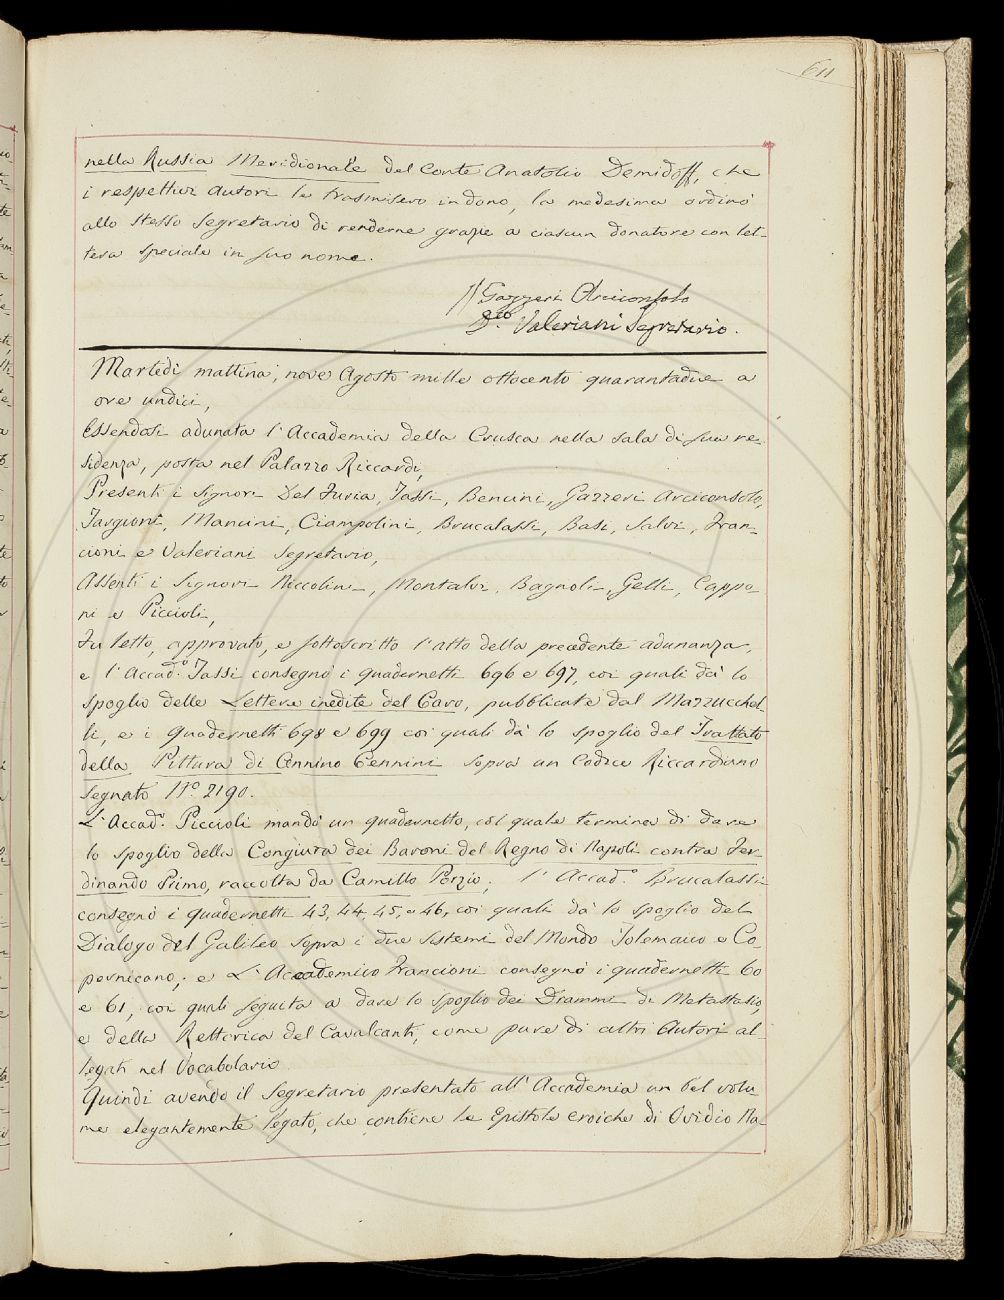 611
nella Russia Meridionale del Conte Anatolio Demidoff, che
i respettivi autori le trasmisero in dono, la medesima ordinò
allo stesso Segretario di renderne grazie a ciascun donatore con let-
tera speciale in suo nome.
Gazzeri Arciconsolo
Valeriani Segretario.
Martedì mattina, nove Agosto mille ottocento quarantadue a
ore undici,
Essendosi adunata l'Accademia della Crusca nella sala di sua re-
sidenza, posta nel Palazzo Riccardi,
Presenti i Signori Del Furia, Tassi, Bencini, Gazzeri Arciconsolo,
Targioni, Mancini, Ciampolini, Brucalassi, Basi, Salvi, Fran-
cioni e Valeriani Segretario,
Assenti i Signori Niccolini, Montalvi, Bagnoli, Gelli, Cappo-
ni e Piccioli,
Fu letto, approvato, e sottoscritto l'atto della precedente adunanza,
e l'Accad.º Tassi consegnò i quadernetti 696 e 697, coi quali dà lo
spoglio delle Lettere inedite del Caro, pubblicate dal Mazzucchel-
li, e i quadernetti 698 e 699 coi quali dà lo spoglio del Trattato
della Pittura di Cennino Cennini sopra un Codice Riccardiano
segnato Nº. 2190.
L'Accad.º Piccioli mandò un quadernetto, col quale termina di dare
lo spoglio della Congiura dei Baroni del Regno di Napoli contra Fer-
dinando Primo, raccolta da Camillo Porzio; l'Accad.º Brucalassi
consegnò i quadernetti 43, 44, 45, e 46, coi quali dà lo spoglio del
Dialogo del Galileo sopra i due sistemi del Mondo Tolemaico e Co-
pernicano; e L'Accademico Francioni consegnò i quadernetti 60
e 61, coi quali seguita a dare lo spoglio dei Drammi di Metastasio,
e della Rettorica del Cavalcanti, come pure di altri Autori al-
legati nel Vocabolario.
Quindi avendo il Segretario presentato all'Accademia un bel volu-
me elegantemente legato, che contiene le Epistole eroiche di Ovidio Na-